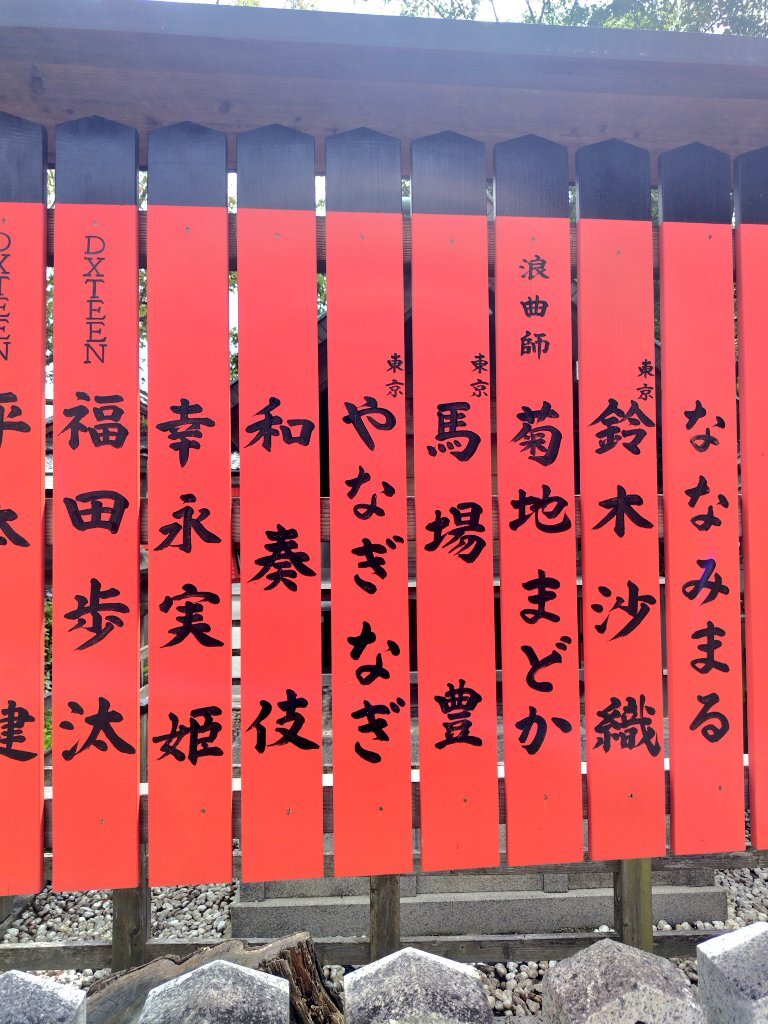 ななみまる
東京
鈴木沙織
浪曲師
菊地まどか
東京
馬場豊
東京
やなぎなぎ
和奏伎
幸永実姫
DXTEEN
福田歩汰
DXTEEN
平太健